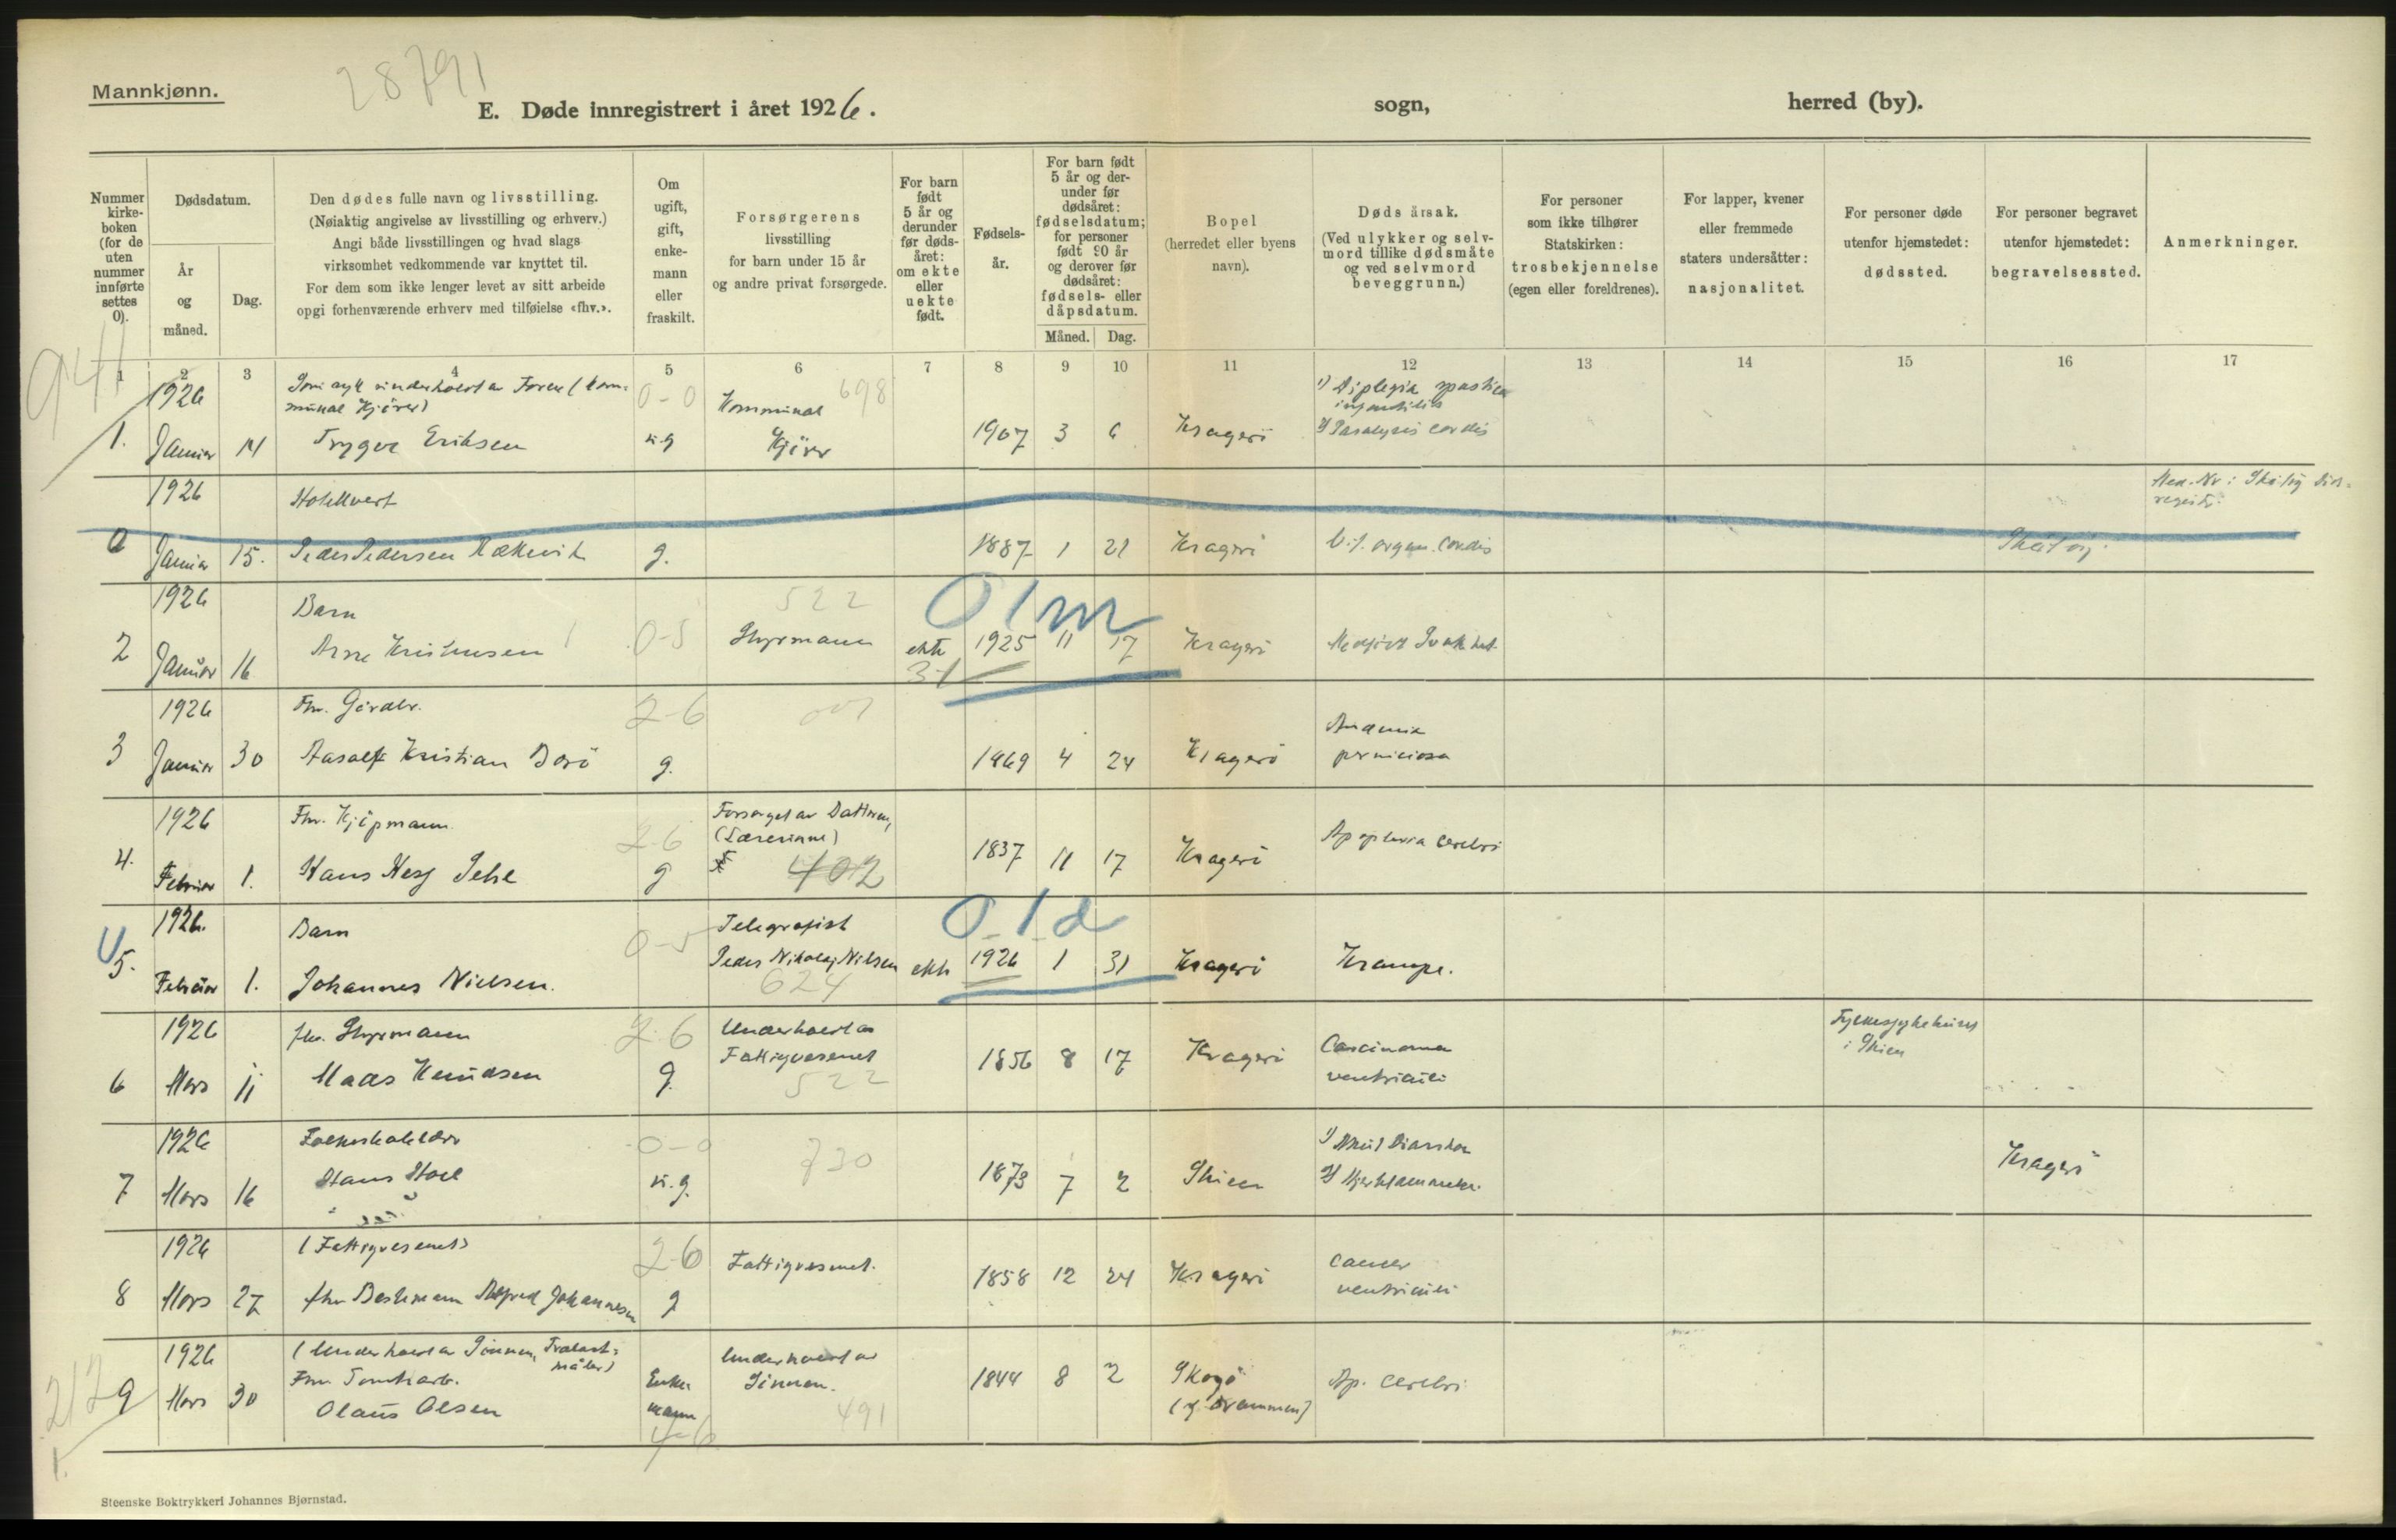 Mannkjønn.
28791
E. Døde innregistrert i året 1926.
sogn,
herred (by).
Nummer
kirke-
boken
(for de
uten
nummer
innførte
settes
0).
Dødsdatum.
År
og
måned.
Dag.
Den dødes fulle navn og livsstilling.
(Nøiaktig angivelse av livsstilling og erhverv.)
Angi både livsstillingen og hvad slags
virksomhet vedkommende var knyttet til.
For dem som ikke lenger levet av sitt arbeide
opgi forhenværende erhverv med tilføielse «fhv.».
Om
ugift,
gift,
enke-
mann
eller
fraskilt.
Forsørgerens
livsstilling
for barn under 15 år
og andre privat forsørgede.
For barn
født
5 år og
derunder
før døds-
året:
om ekte
eller
uekte
født.
Fødsels-
år.
For barn født
5 år og der-
under før
dødsåret:
fødselsdatum;
for personer
født 90 år
og derover før
dødsåret:
fødsels- eller
dåpsdatum.
Måned. Dag.
Bopel
(herredet eller byens
navn).
Døds årsak.
(Ved ulykker og selv-
mord tillike dødsmåte
og ved selvmord
beveggrunn.)
For personer
som ikke tilhører
Statskirken:
trosbekjennelse
(egen eller foreldrenes).
For lapper, kvener
eller fremmede
staters undersåtter:
nasjonalitet.
For personer døde
utenfor hjemstedet:
dødssted.
For personer begravet
utenfor hjemstedet:
begravelsessted.
Anmerkninger.
1 2 3 4 5 6 7 8 9 10 11 12 13 14 15 16 17
941
1926
0-0
Kommunal 698
1) Diplegia spastica
infantilis
1. Januar 14 Trygve Eriksen u.g Kjörer 1907 3 6 Kragerö 2) Paralysis cordis
1926 Hotellvert
0 Januar 15. Peder Pedersen g. 1887 1 21 Kragerö V. organ. cordis Skåtöy.
1926 Barn 522 0 1 m
2 Januar 16 Arne Kristensen 0-5 Styrmann ekte 1925 11 17 Kragerö Medfödt Svakhet
3-1
1926 Fhv. Gårdbr. 2-6
Anæmia
3 Januar 30 Aasolf Kristian g. 1869 4 24 Kragerö perniciosa
1926 Fhv. Kjöpmann 2-6
Forsörget av Datteren,
(Lærerinne)
4. Februar 1. Hans g 402 1837 11 17 Kragerö Apoplexia cerebri
1926. Barn 0-5 Telegrafist 0-1 d
5. Februar 1. Johannes Nielsen. Peder Nikolaj Nilsen ekte 1926 1 31 Kragerö Krampe.
624
1926 fhv. Styrmann 2-6
Underholdt av
Fattigvesenet
522
6 Mars 11 Mads Knudsen g. 1856 8 17 Kragerö Carcinoma
ventriculi
Fylkessykehuset
i Skien
1926 Folkeskolelærer 0-0 730
7 Mars 16 Hans u.g. 1873 7 2 Skien
Kragerö
1926 (Fattigvesenet) 2-6 Fattigvesenet.
8 Mars 27 fhv Alfred Johannesen g 1858 12 24 Kragerö Cancer
ventriculi
1926 (Underholdt av Sönnen,
Underholdt av
Sönnen.
2129 Mars 30 Olaus Olsen Enke
mann
4-6 491 1844 8 2 Ap. cerebri
Steenske Boktrykkeri Johannes Bjørnstad.